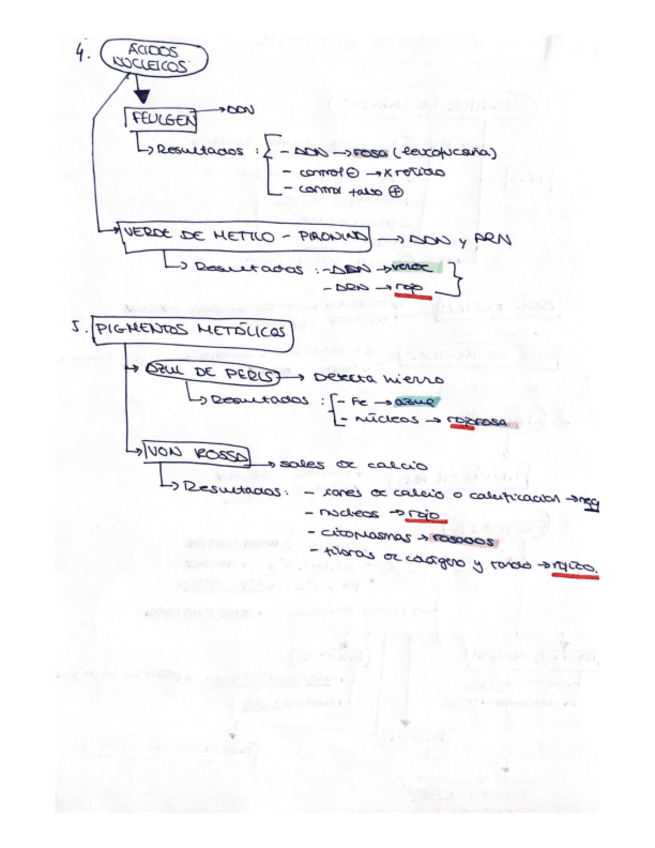 4. ÁCIDOS
NUCLEICOS
FEULGEN → ADN
Resultados : - ADN → rosa (leucofucsina)
- control ⊖ → x reñido
- control falso ⊕
VERDE DE METILO - PIRONINA → ADN y ARN
Resultados : - ADN → verde
- ARN → rojo
5. PIGMENTOS METÁLICOS
AZUL DE PERLS → Detecta hierro
Resultados : - Fe → azul
- Núcleos → rojo rosa
VON KOSSA → sales de calcio
Resultados : - sales de calcio o calcificación → neg
- núcleos → rojo
- citoplasmas → rosados
- fibras de colágeno y fondo →